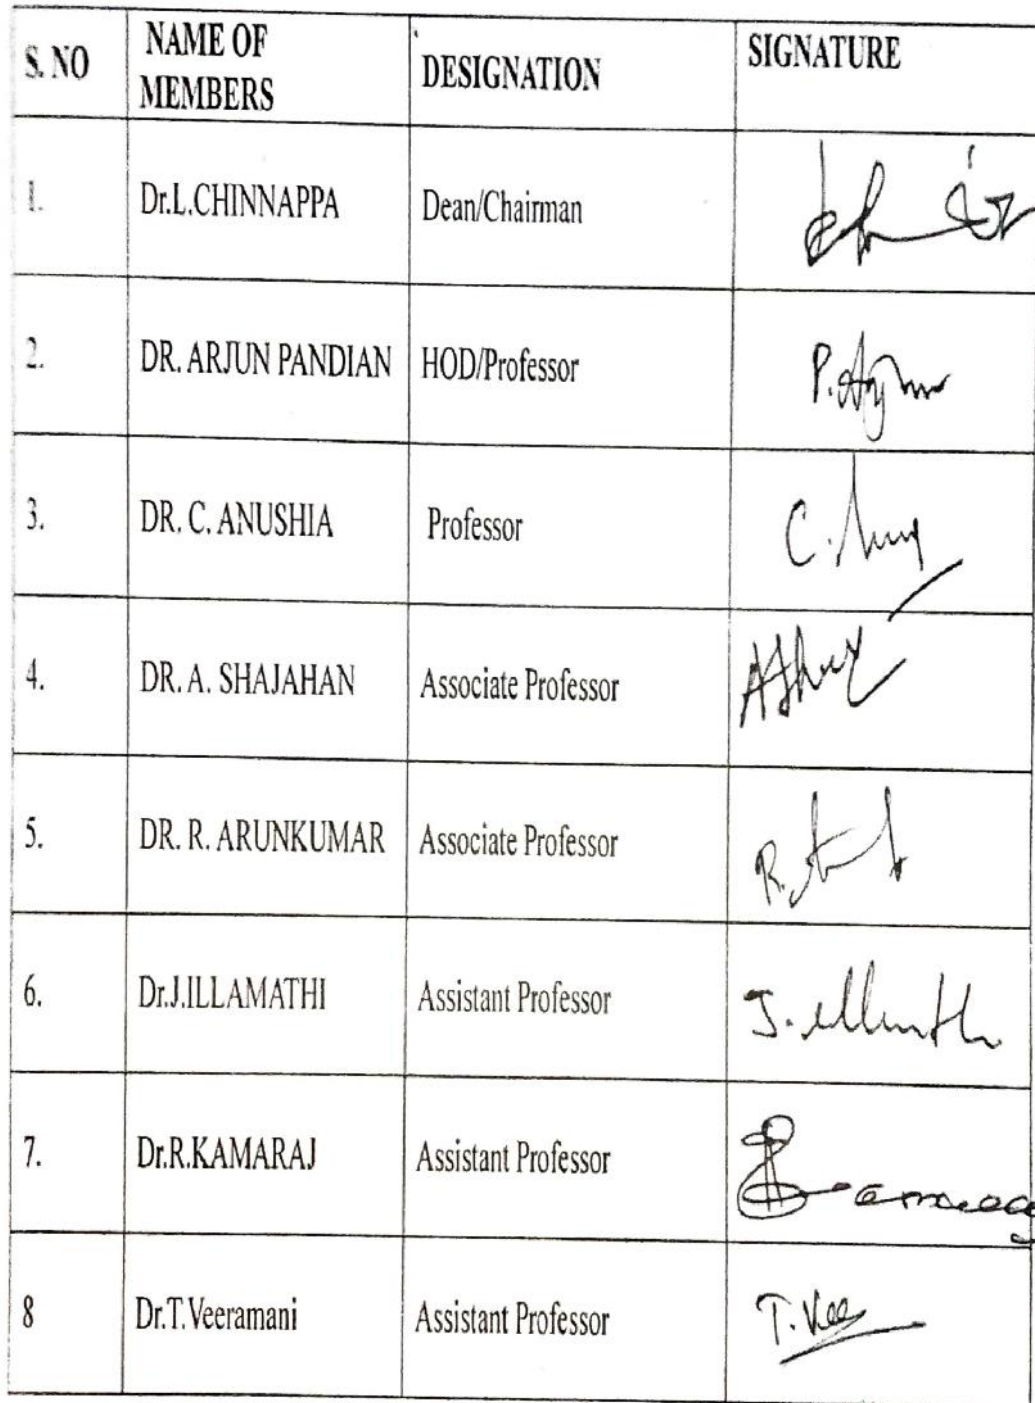 S. NO NAME OF MEMBERS DESIGNATION SIGNATURE
1. Dr.L.CHINNAPPA Dean/Chairman
2. DR. ARJUN PANDIAN HOD/Professor
3. DR. C. ANUSHIA Professor
4. DR. A. SHAJAHAN Associate Professor
5. DR. R. ARUNKUMAR Associate Professor
6. Dr.J.ILLAMATHI Assistant Professor
7. Dr.R.KAMARAJ Assistant Professor
8 Dr.T.Veeramani Assistant Professor T.Vee